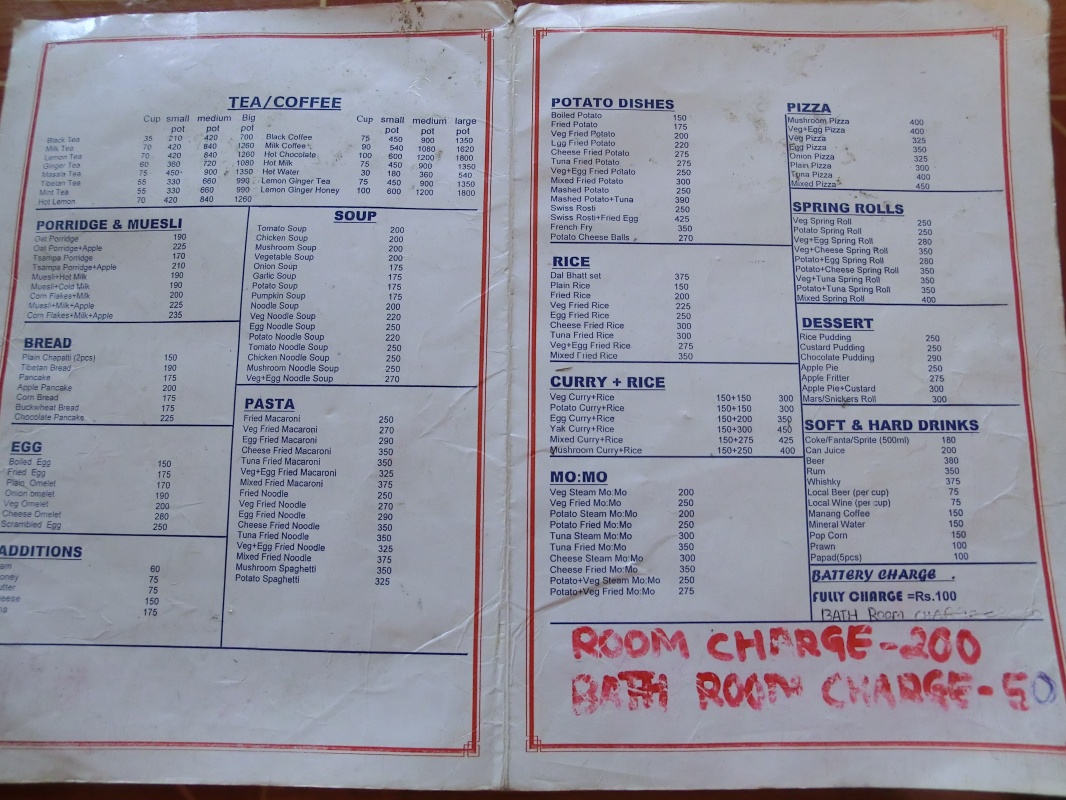 TEA/COFFEE
Cup small pot medium pot Big pot
Black Tea 35 210 420 700
Milk Tea 70 420 840 1260
Lemon Tea 70 420 840 1260
Ginger Tea 60 360 720 1080
Masala Tea 75 450 900 1350
Tibetan Tea 55 330 660 990
Mint Tea 55 330 660 990
Hot Lemon 70 420 840 1260
Cup small pot medium pot large pot
Black Coffee 75 450 900 1350
Milk Coffee 90 540 1080 1620
Hot Chocolate 100 600 1200 1800
Hot Milk 75 450 900 1350
Hot Water 30 180 360 540
Lemon Ginger Tea 75 450 900 1350
Lemon Ginger Honey 100 600 1200 1800
PORRIDGE & MUESLI
Oat Porridge 190
Oat Porridge+Apple 225
Tsampa Porridge 170
Tsampa Porridge+Apple 210
Muesli+Hot Milk 190
Muesli+Cold Milk 190
Corn Flakes+Milk 200
Muesli+Milk+Apple 225
Corn Flakes+Milk+Apple 235
BREAD
Plain Chapatti (2pcs) 150
Tibetan Bread 175
Pancake 175
Apple Pancake 200
Corn Bread 175
Buckwheat Bread 175
Chocolate Pancake 225
EGG
Boiled Egg 150
Fried Egg 175
Plain Omelet 170
Onion omelet 190
Veg Omelet 200
Cheese Omelet 280
Scrambled Egg 250
ADDITIONS
am 60
oney 75
utter 75
eese 150
na 175
SOUP
Tomato Soup 200
Chicken Soup 200
Mushroom Soup 200
Vegetable Soup 200
Onion Soup 175
Garlic Soup 175
Potato Soup 175
Pumpkin Soup 175
Noodle Soup 200
Veg Noodle Soup 220
Egg Noodle Soup 250
Potato Noodle Soup 220
Tomato Noodle Soup 250
Chicken Noodle Soup 250
Mushroom Noodle Soup 250
Veg+Egg Noodle Soup 270
PASTA
Fried Macaroni 250
Veg Fried Macaroni 270
Egg Fried Macaroni 290
Cheese Fried Macaroni 350
Tuna Fried Macaroni 350
Veg+Egg Fried Macaroni 325
Mixed Fried Macaroni 375
Fried Noodle 250
Veg Fried Noodle 270
Egg Fried Noodle 290
Cheese Fried Noodle 350
Tuna Fried Noodle 350
Veg+Egg Fried Noodle 325
Mixed Fried Noodle 375
Mushroom Spaghetti 350
Potato Spaghetti 325
POTATO DISHES
Boiled Potato 150
Fried Potato 175
Veg Fried Potato 200
Egg Fried Potato 220
Cheese Fried Potato 275
Tuna Fried Potato 275
Veg+Egg Fried Potato 250
Mixed Fried Potato 300
Mashed Potato 250
Mashed Potato+Tuna 390
Swiss Rosti 250
Swiss Rosti+Fried Egg 425
French Fry 350
Potato Cheese Balls 270
RICE
Dal Bhatt set 375
Plain Rice 150
Fried Rice 200
Veg Fried Rice 225
Egg Fried Rice 250
Cheese Fried Rice 300
Tuna Fried Rice 300
Veg+Egg Fried Rice 275
Mixed Fried Rice 350
CURRY + RICE
Veg Curry+Rice 150+150 300
Potato Curry+Rice 150+150 300
Egg Curry+Rice 150+200 350
Yak Curry+Rice 150+300 450
Mixed Curry+Rice 150+275 425
Mushroom Curry+Rice 150+250 400
MO:MO
Veg Steam Mo:Mo 200
Veg Fried Mo:Mo 250
Potato Steam Mo:Mo 200
Potato Fried Mo:Mo 250
Tuna Steam Mo:Mo 300
Tuna Fried Mo:Mo 350
Cheese Steam Mo:Mo 300
Cheese Fried Mo:Mo 350
Potato+Veg Steam Mo:Mo 250
Potato+Veg Fried Mo:Mo 275
PIZZA
Mushroom Pizza 400
Veg+Egg Pizza 400
Veg Pizza 325
Egg Pizza 350
Onion Pizza 325
Plain Pizza 300
Tuna Pizza 400
Mixed Pizza 450
SPRING ROLLS
Veg Spring Roll 250
Potato Spring Roll 250
Veg+Egg Spring Roll 280
Veg+Cheese Spring Roll 350
Potato+Egg Spring Roll 280
Potato+Cheese Spring Roll 350
Veg+Tuna Spring Roll 350
Potato+Tuna Spring Roll 350
Mixed Spring Roll 400
DESSERT
Rice Pudding 250
Custard Pudding 250
Chocolate Pudding 290
Apple Pie 250
Apple Fritter 275
Apple Pie+Custard 300
Mars/Snickers Roll 300
SOFT & HARD DRINKS
Coke/Fanta/Sprite (500ml) 180
Can Juice 200
Beer 380
Rum 350
Whishky 375
Local Beer (per cup) 75
Local Wine (per cup) 75
Manang Coffee 150
Mineral Water 150
Pop Corn 150
Prawn 100
Papad(5pcs) 100
BATTERY CHARGE .
FULLY CHARGE =Rs.100
BATH ROOM
ROOM CHARGE-200
BATH ROOM CHARGE-50